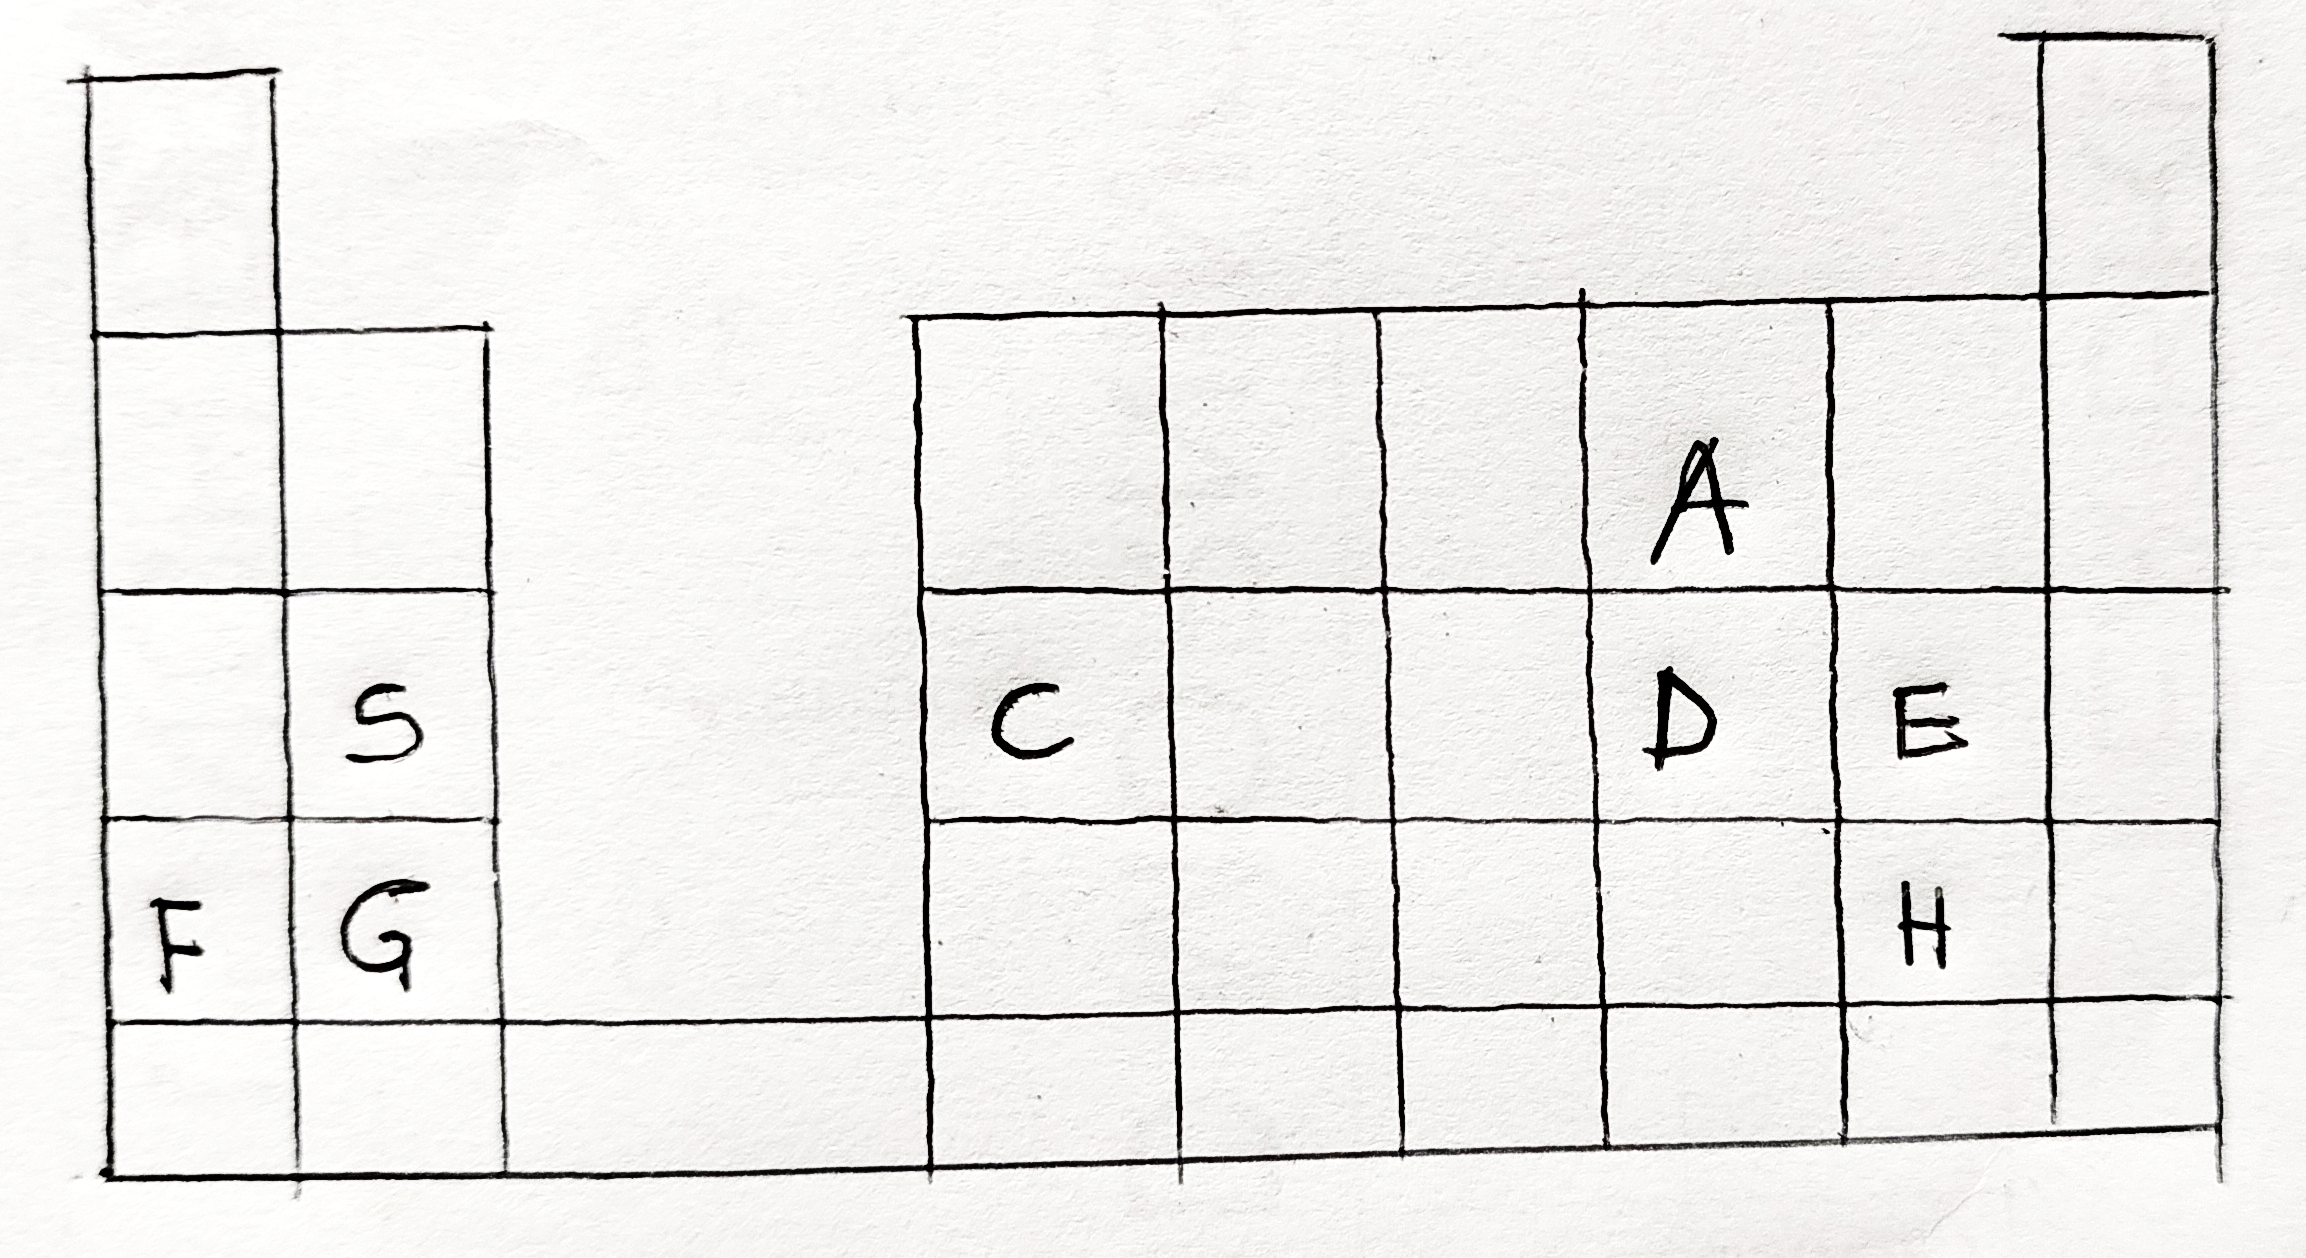 A
S C D E
F G H